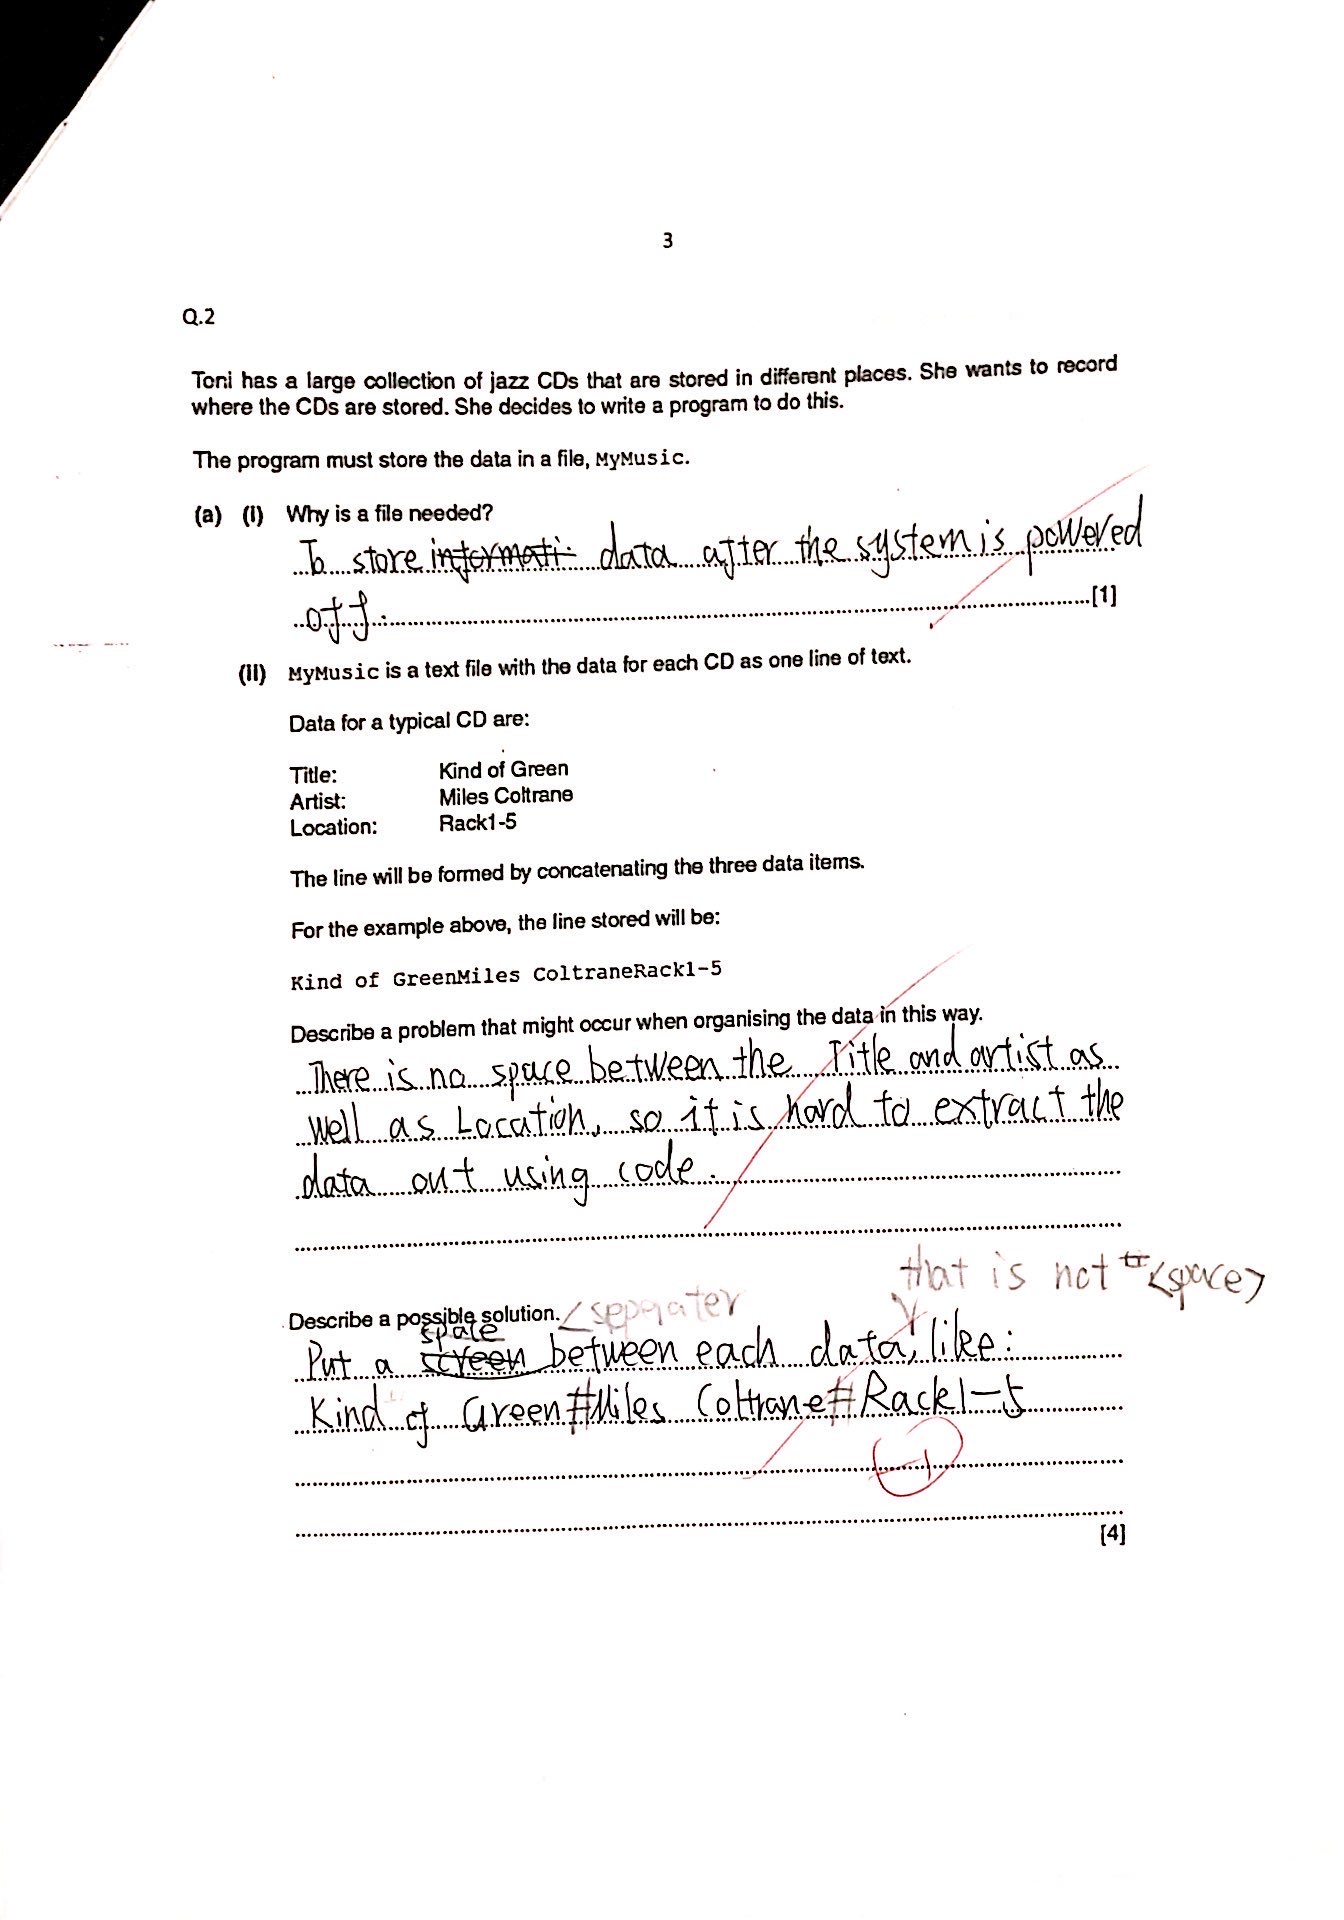 3
Q.2
Toni has a large collection of jazz CDs that are stored in different places. She wants to record
where the CDs are stored. She decides to write a program to do this.
The program must store the data in a file, MyMusic.
(a) (i) Why is a file needed?
To store informati data after the system is powered
off. [1]
(ii) MyMusic is a text file with the data for each CD as one line of text.
Data for a typical CD are:
Title: Kind of Green
Artist: Miles Coltrane
Location: Rack1-5
The line will be formed by concatenating the three data items.
For the example above, the line stored will be:
Kind of GreenMiles ColtraneRack1-5
Describe a problem that might occur when organising the data in this way.
There is no space between the Title and artist as
well as Location, so it is hard to extract the
data out using code.
that is not <space>
Describe a possible solution. <seperater
space
Put a screen between each data, like:
Kind of Green#Miles Coltrane#Rack1-5
-1
[4]